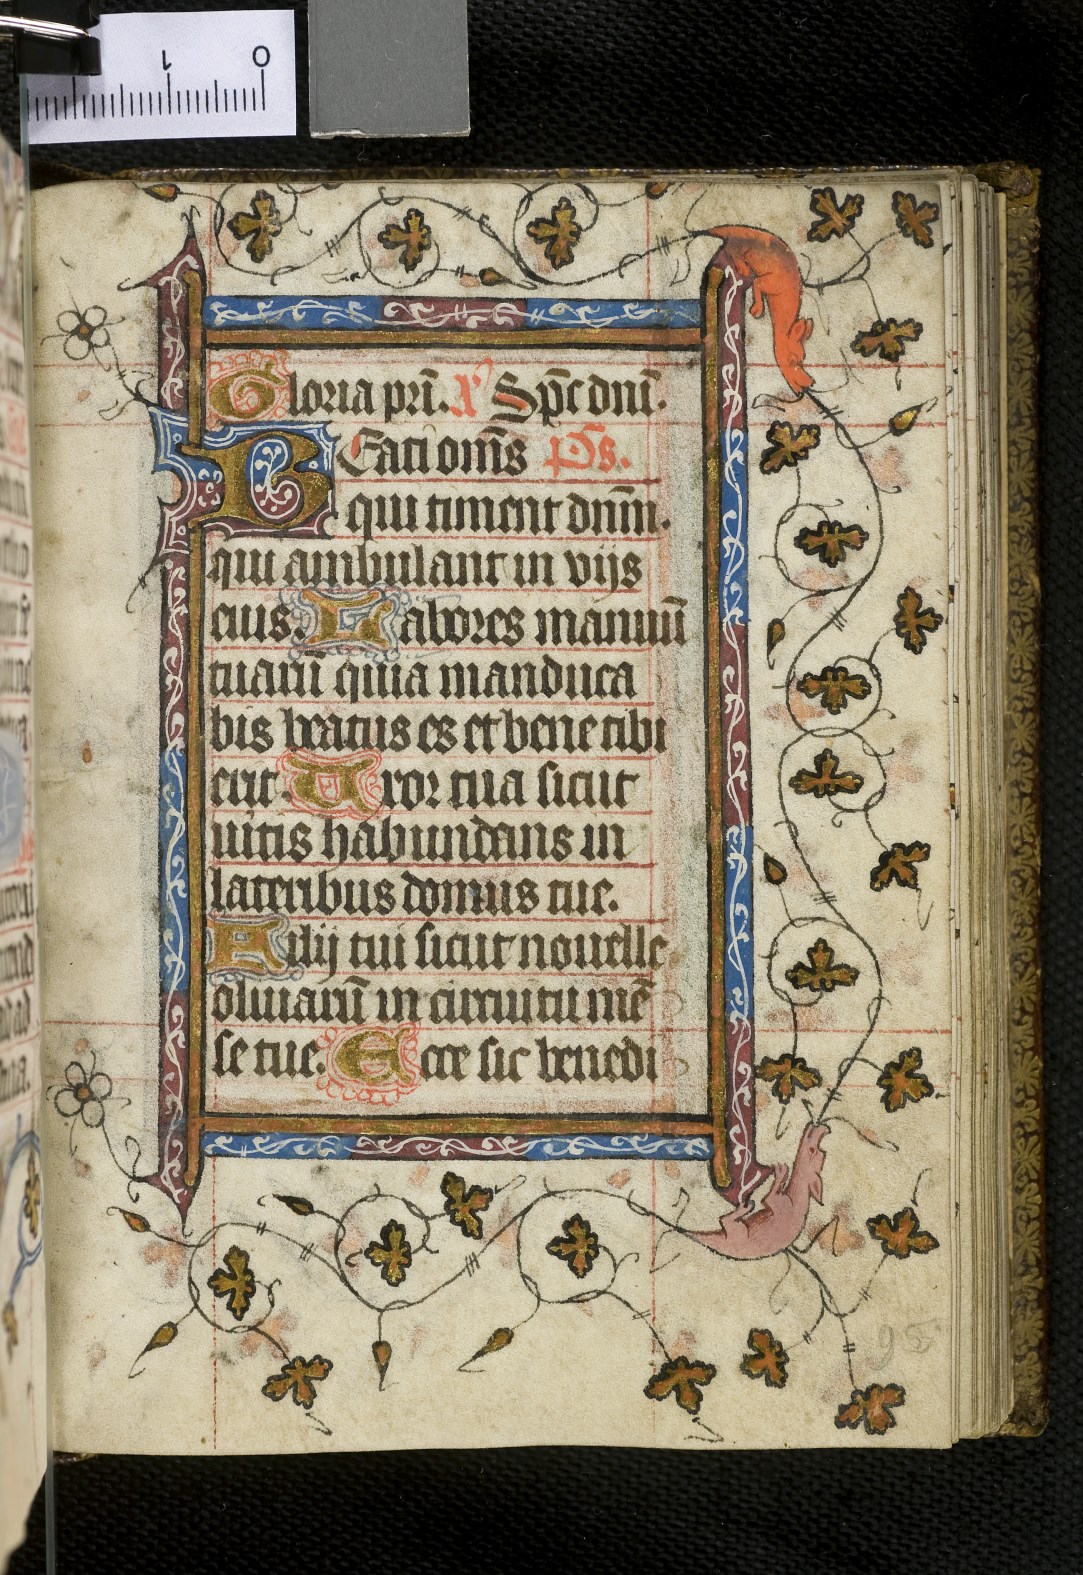 1 0
Gloria pr̄i. x̄ Sp̄c dn̄i.
BEati om̄s p̄s.
qui timent dn̄m.
qui ambulant in vijs
eius. Labores manuū
tuarū quia manduca
bis beatus es et bene tibi
erit. Uxor tua sicut
uitis habundans in
lateribus domus tue.
Filij tui sicut nouelle
oliuarū in circuitu mē
se tue. Ecce sic benedi
95